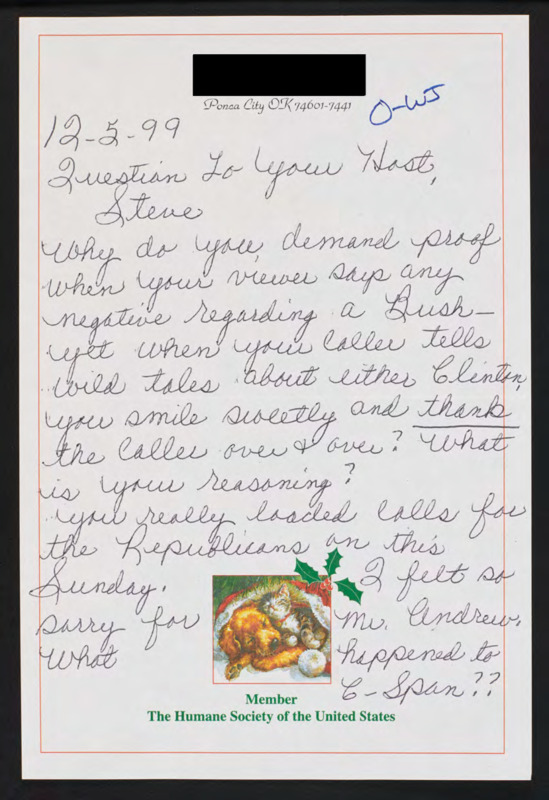 Ponca City OK 74601-7441
O-WJ
12-5-99
Question to your Host,
Steve
Why do you demand proof
when your viewer says any
negative regarding a Bush—
yet when your caller tells
wild tales about either Clinton,
you smile sweetly and thank
the caller over & over? What
is your reasoning?
You really loaded calls for
the Republicans on this
Sunday. I felt so
sorry for Mr. Andrew.
What happened to
C-Span??
Member
The Humane Society of the United States